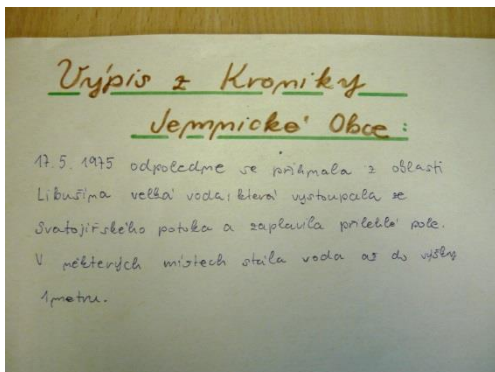 Výpis z Kroniky
Jemnické Obce :
17.5.1975 odpoledne se přihnala z oblasti
Libušína velká voda, která vystoupala ze
Svatojiřského potoka a zaplavila přilehlé pole.
V některých místech stála voda až do výšky
1 metru.